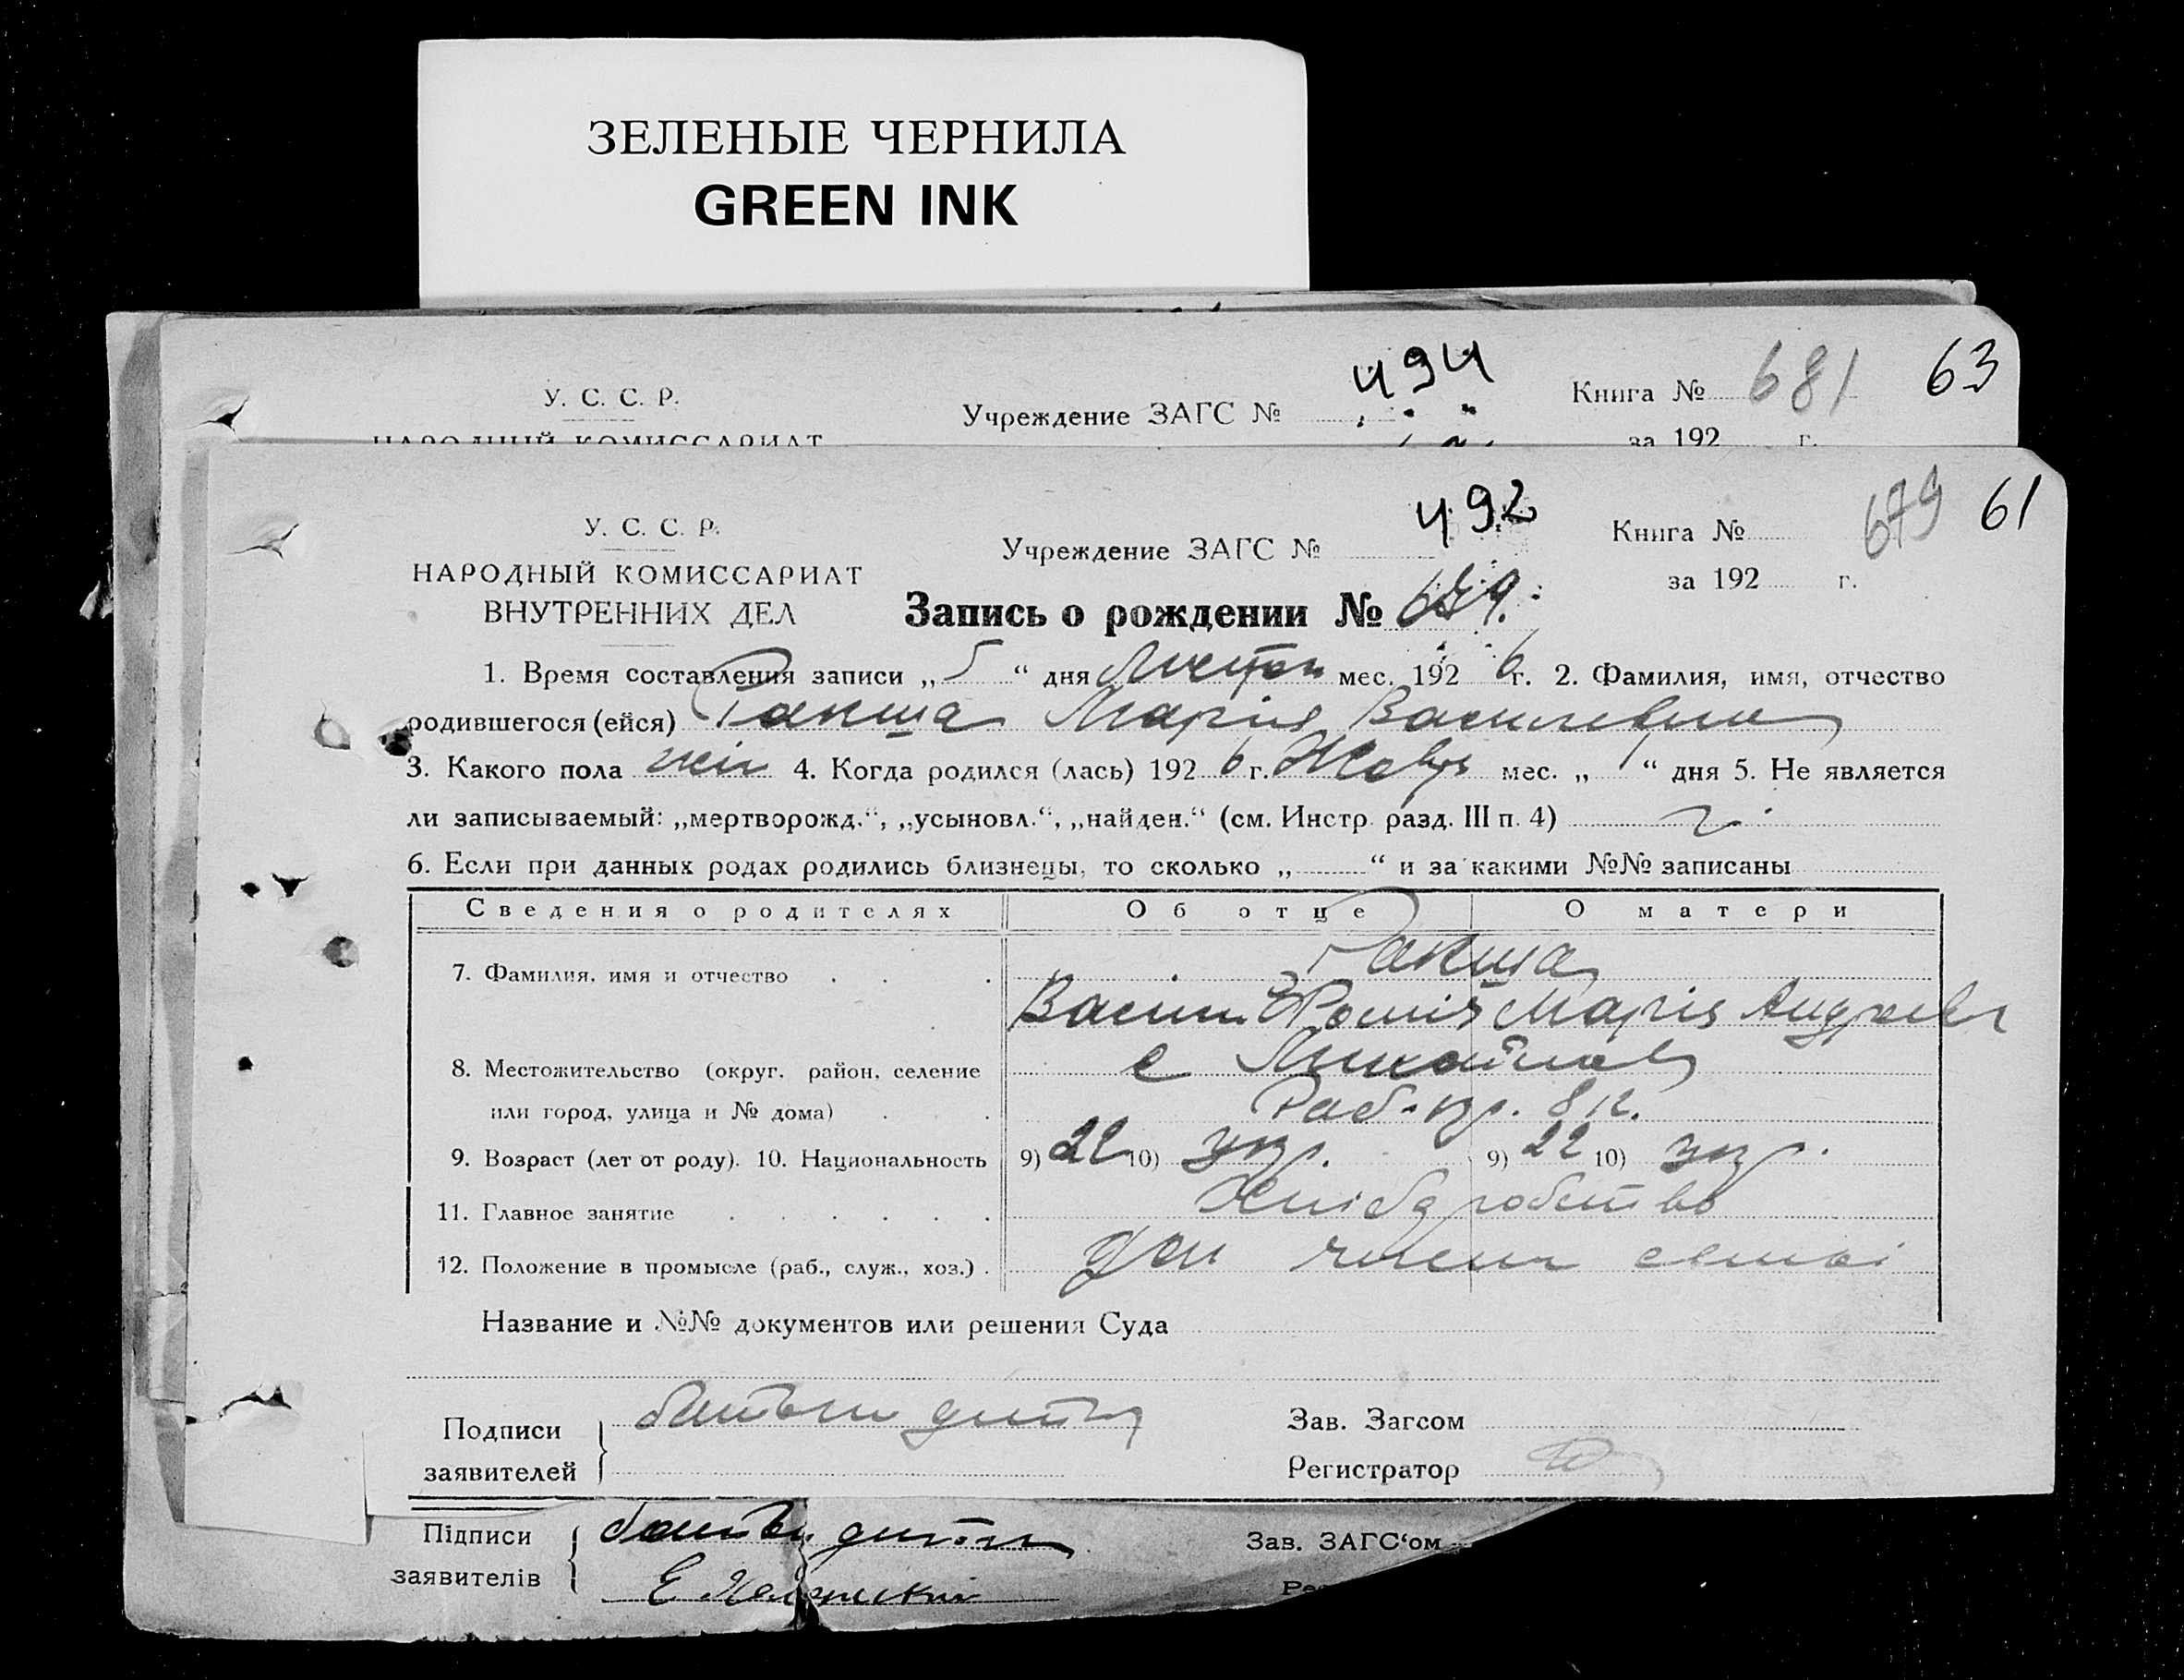 ЗЕЛЕНЫЕ ЧЕРНИЛА
GREEN INK
494
681 63
У. С. С. Р.
Учреждение ЗАГС №
Книга №
НАРОДНЫЙ КОМИССАРИАТ
за 192 г.
492
679 61
У. С. С. Р.
Учреждение ЗАГС №
Книга №
НАРОДНЫЙ КОМИССАРИАТ
за 192 г.
ВНУТРЕННИХ ДЕЛ
Запись о рождении № 679.
1. Время составления записи „ 5 “ дня мес. 192 6 г. 2. Фамилия, имя, отчество
родившегося (ейся) Ракша Марія Васильевна
3. Какого пола жін 4. Когда родился (лась) 192 6 г. Жовт мес. „ 1 “ дня 5. Не является
ли записываемый: „мертворожд.“, „усыновл.“, „найден.“ (см. Инстр. разд. III п. 4)
6. Если при данных родах родились близнецы, то сколько „ “ и за какими №№ записаны
Сведения о родителях Об отце О матери
7. Фамилия, имя и отчество Ракша
Васил Марія Андреев
8. Местожительство (округ, район, селение с
или город, улица и № дома) 8 к.
9. Возраст (лет от роду). 10. Национальность 9) 22 10) укр. 9) 22 10) укр.
11. Главное занятие Хлібодробство
12. Положение в промысле (раб., служ., хоз.) член семьі
Название и №№ документов или решения Суда
Подписи
заявителей
батьки дитин
Зав. Загсом
Регистратор
Підписи
заявителів
батьки дитин
Зав. ЗАГС‘ом
Е
Ре